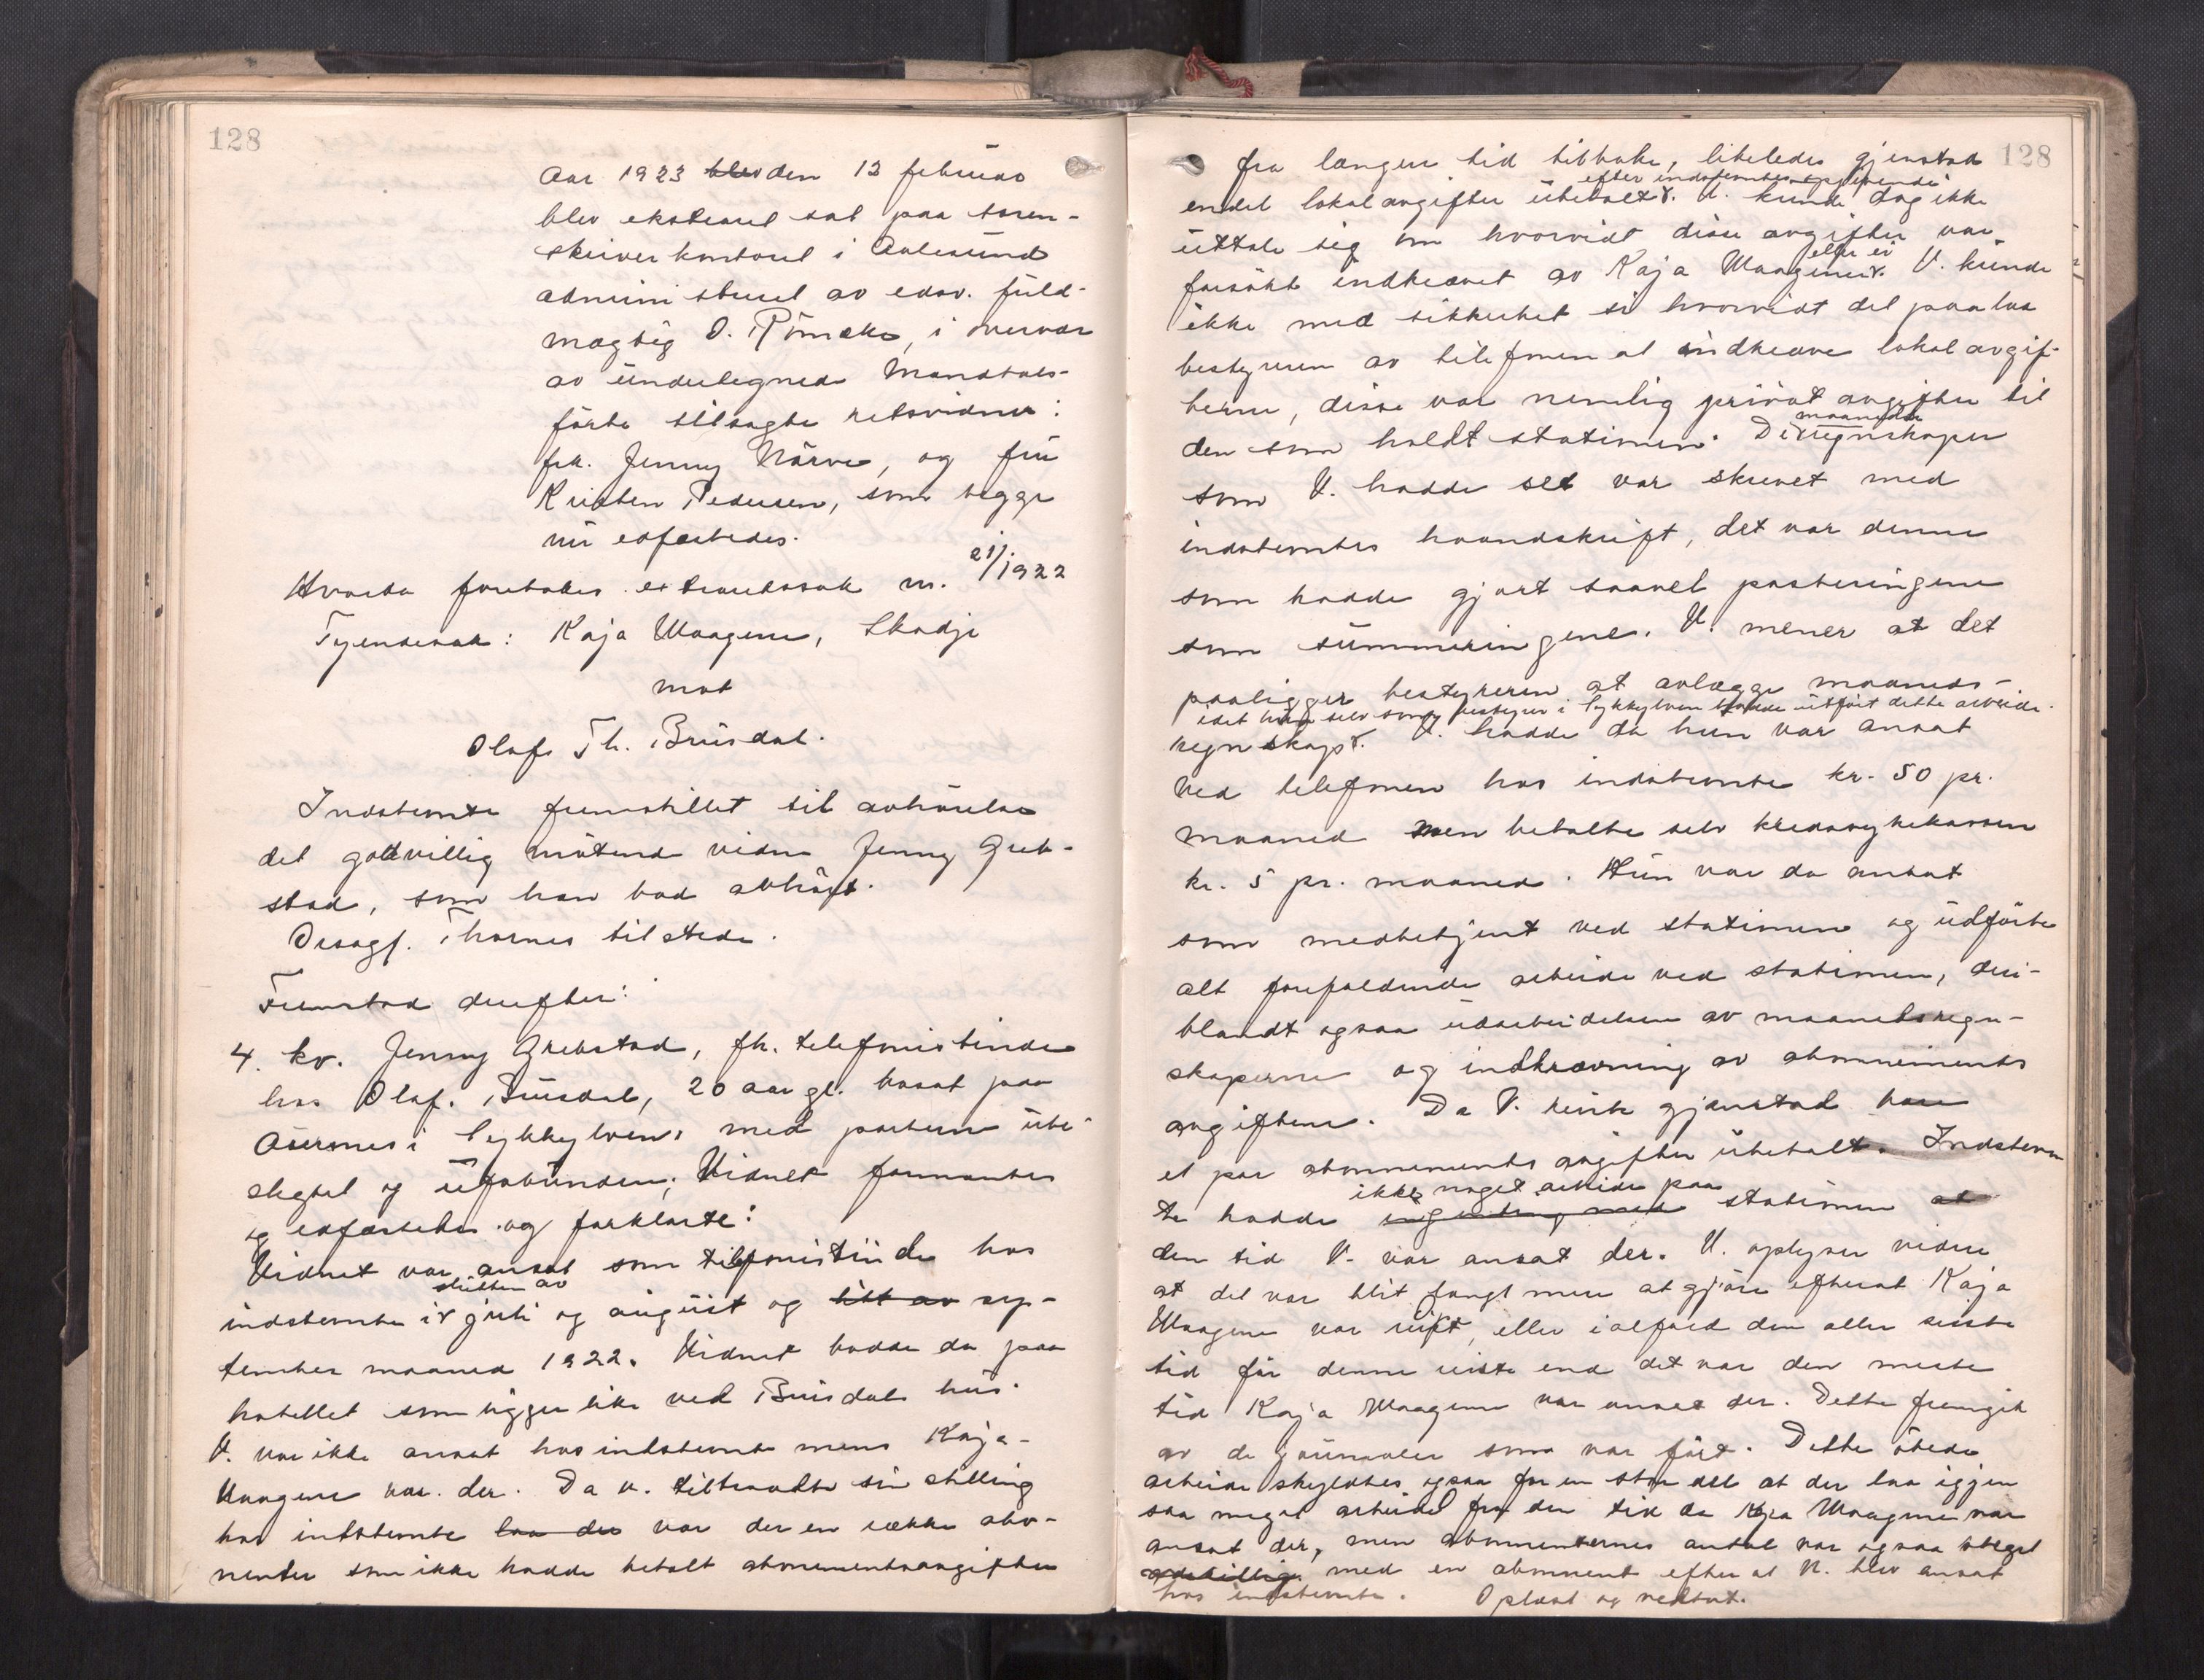 128
Aar 1923 blev den 12 februar
blev ekstraret sat paa soren-
skriverkontoret i Aalesund
administreret av edsv. fuld-
mægtig O. Römcke, i overvær
av undertegnede mandtals-
førte tilsagte retsvidner:
frk. Jenny Nörve, og fru
Kristen Pedersen, som begge
nu edfæstedes.
Hvorda foretokes extraretssak nr. 21/1922
Tyendesak: Kaja Waagene, Skodje
mot
Olaf Th. Brusdal.
Indstevnte fremstillet til avhörelse
det godvillig mötende vidne Jenny Greb-
stad, som han bad avhört.
Orsagf. Thornes tilstede.
Fremstod derefter:
4. kv. Jenny Grebstad, fh. telefonistinde
hos Olaf Brusdal, 20 aar gl. bosat paa
Aurenes i Sykkylven, med parterne ube-
slegtet og uforbunden; Vidnet formantes
og edfæstedes og forklarte:
Vidnet var ansat som telefonistinde hos
slutten av
indstevnte i juli og august og litt av sep-
tember maaned 1922. Vidnet bodde da paa
hotellet som ligger like ved Brusdals hus.
V. var ikke ansat hos indstevnte mens Kaja
Waagene var der. Da v. tiltraadte sin stilling
hos indstevnte laa der var der en række abo-
nenter som ikke hadde betalt abonnementsavgiften
128
fra længere tid tilbake, likeledes gjenstod
efter indstevntes opgivende
endel lokalavgifter ubetalt. V. kunde dog ikke
uttale sig om hvorvidt disse avgifter var
eller ei
forsökt indkrævet av Kaja Waagene. V. kunde
ikke med sikkerhet si hvorvidt det paalaa
bestyreren av telefonen at indkræve lokalavgif-
terne, disse var nemlig privat avgifter til
maanedlige
den som holdt stationen. De regnskaper
som V. hadde set var skrevet med
indstevntes haandskrift, det var denne
som hadde gjort saavel posteringene
som summeringene. V. mener at det
paaligger bestyreren at avlægge maaneds-
idet hun selv som bestyrer i Sykkylven hadde utfört dette arbeide.
regnskap. V. hadde da hun var ansat
ved telefonen hos indstevnte kr. 50 pr.
maaned men betalte selv kredssykekassen
kr. 5 pr. maaned. Hun var da ansat
som medbetjent ved stationen og udförte
alt forefaldende arbeide ved stationen, deri-
blandt ogsaa utarbeidelsen av maanedsregn-
skaperne og indkrævning av abonnements
avgiftene. Da V. reiste gjenstod bare
et par abonnements avgifter ubetalt. Indstevn
ikke noget arbeide paa
te hadde ingenting med stationen at
den tid V. var ansat der. V. oplyser videre
at det var blit langt mere at gjöre efterat Kaja
Waagene var reist, eller ialfald den aller sidste
tid för denne reiste end det var den meste
tid Kaja Waagene var ansat der. Dette fremgik
av de journaler som var fört. Dette ökede
arbeide skyldtes ogsaa for en stor del at der laa igjen
saa meget arbeide fra den tid da Kaja Waagene var
ansat der, men abonnenternes antal var ogsaa steget
adskillig med en abonnent efterat V. blev ansat
hos indstevnte. Oplæst og vedtat.